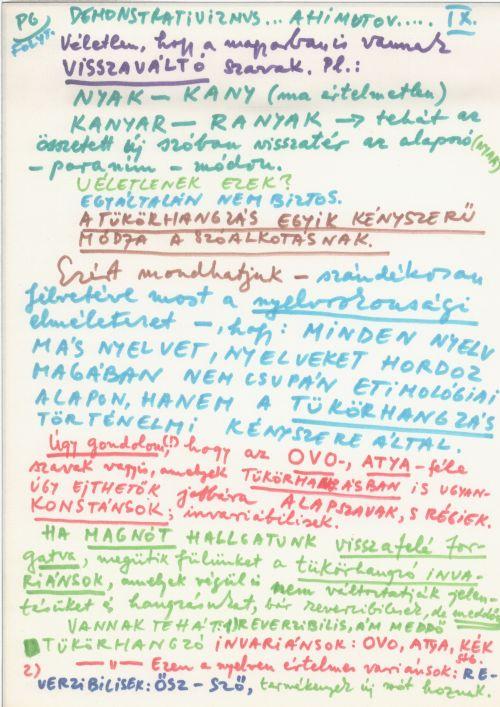 P6 DEMONSTRATIVIZMUS... AHIMOTOV..... IX.
FOLYT.
Véletlen, hogy a magyarban is vannak
VISSZAVÁLTÓ szavak. Pl.:
NYAK — KANY (ma értelmetlen)
KANYAR — RANYAK → tehát az
összetett új szóban visszatér az alapszó (NYAK)
- paranim - módon.
VÉLETLENEK EZEK?
EGYÁLTALÁN NEM BIZTOS.
A TÜKÖRHANGZÁS EGYIK KÉNYSZERŰ
MÓDJA A SZÓALKOTÁSNAK.
Ezért mondhatjuk — szándékosan
félretéve most a nyelvrokonsági
elméleteket —, hogy: MINDEN NYELV
MÁS NYELVET, NYELVEKET HORDOZ
MAGÁBAN NEM CSUPÁN ETIMOLÓGIAI
ALAPON, HANEM A TÜKÖRHANGZÁS
TÖRTÉNELMI KÉNYSZERE ÁLTAL.
Úgy gondolom(!) hogy az OVO-, ATYA-féle
szavak vagyis, amelyek TÜKÖRHANGZÁSBAN IS UGYAN-
ÚGY EJTHETŐK jobbára ALAPSZAVAK, S RÉGIEK.
KONSTÁNSOK; invariábilisek.
HA MAGNÓT HALLGATUNK visszafelé for-
gatva, megütik fülünket a tükörhangzó INVA-
RIÁNSOK, amelyek végül is nem változtatják jelen-
tésüket és hangzásukat, bár reverzibilisek, de meddők
VANNAK TEHÁT: 1) REVERZIBILIS, ÁM MEDDŐ
TÜKÖRHANGZÓ INVARIÁNSOK: OVO, ATYA, KÉK stb.
2) — " — Ezen a nyelven értelmes variánsok: RE-
VERZIBILISEK: ŐSZ - SZŐ, termékenyek új szót hoznak.